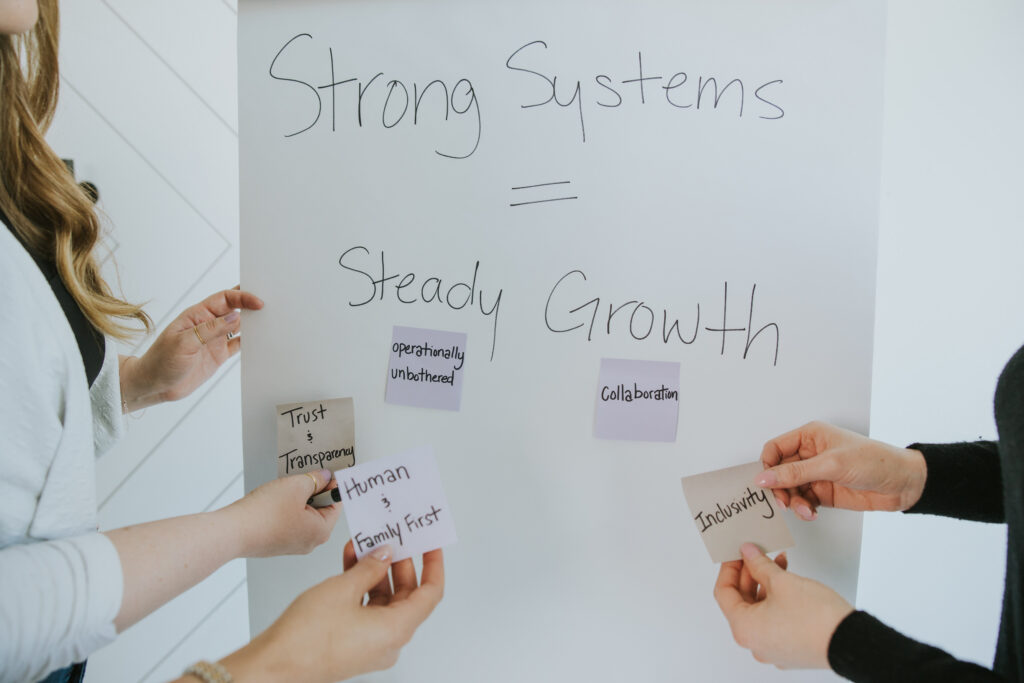 Strong Systems
=
Steady Growth
operationally
unbothered
Collaboration
Trust
&
Transparency
Human
&
Family First
Inclusivity